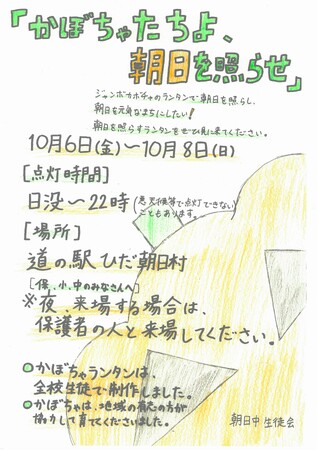 「かぼちゃたちよ、
朝日を照らせ」
ジャンボカボチャのランタンで朝日を照らし、
朝日を元気なまちにしたい!
朝日を照らすランタンをぜひ見に来てください。
10月6日(金)〜10月8日(日)
[点灯時間]
日没〜22時(悪天候等で点灯できない
こともあります。)
[場所]
道の駅ひだ朝日村
[保、小、中のみなさんへ]
※夜、来場する場合は、
保護者の人と来場してください。
かぼちゃランタンは、
全校生徒で制作しました。
かぼちゃは、地域の有志の方が
協力して育ててくださいました。
朝日中 生徒会